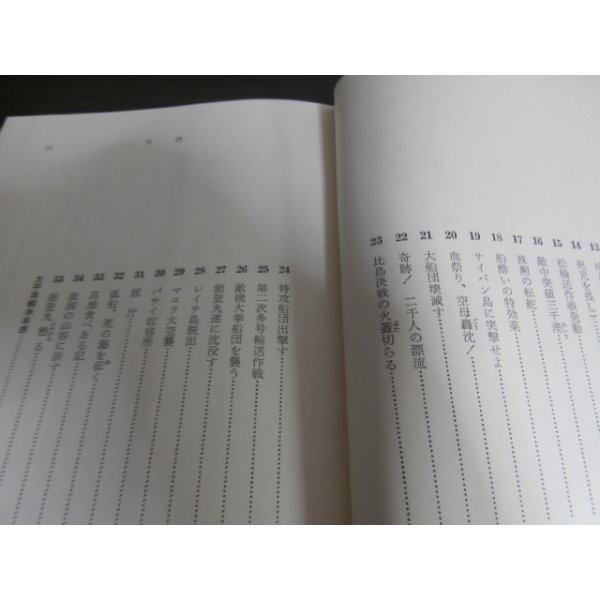 目次
14 死児を残して
15 松輸送作戦発動
16 敵中突破三千浬
17 殊勲の転舵
18 船酔いの特効薬
19 サイパン島に突撃せよ
20 血祭り、空母轟沈！
21 大船団壊滅す
22 奇跡！二千人の漂流
23 比島決戦の火蓋切らる
24 特攻船団出撃す
25 第二次多号輸送作戦
26 敵機大挙船団を襲う
27 能登丸遂に沈没す
28 レイテ島脱出
29 マニラ大空襲
30 パサイ収容所
31 豚汁
32 孤船、死の海を征く
33 高雄食べある記
34 故国の山容に涙す
35 能登丸甦る